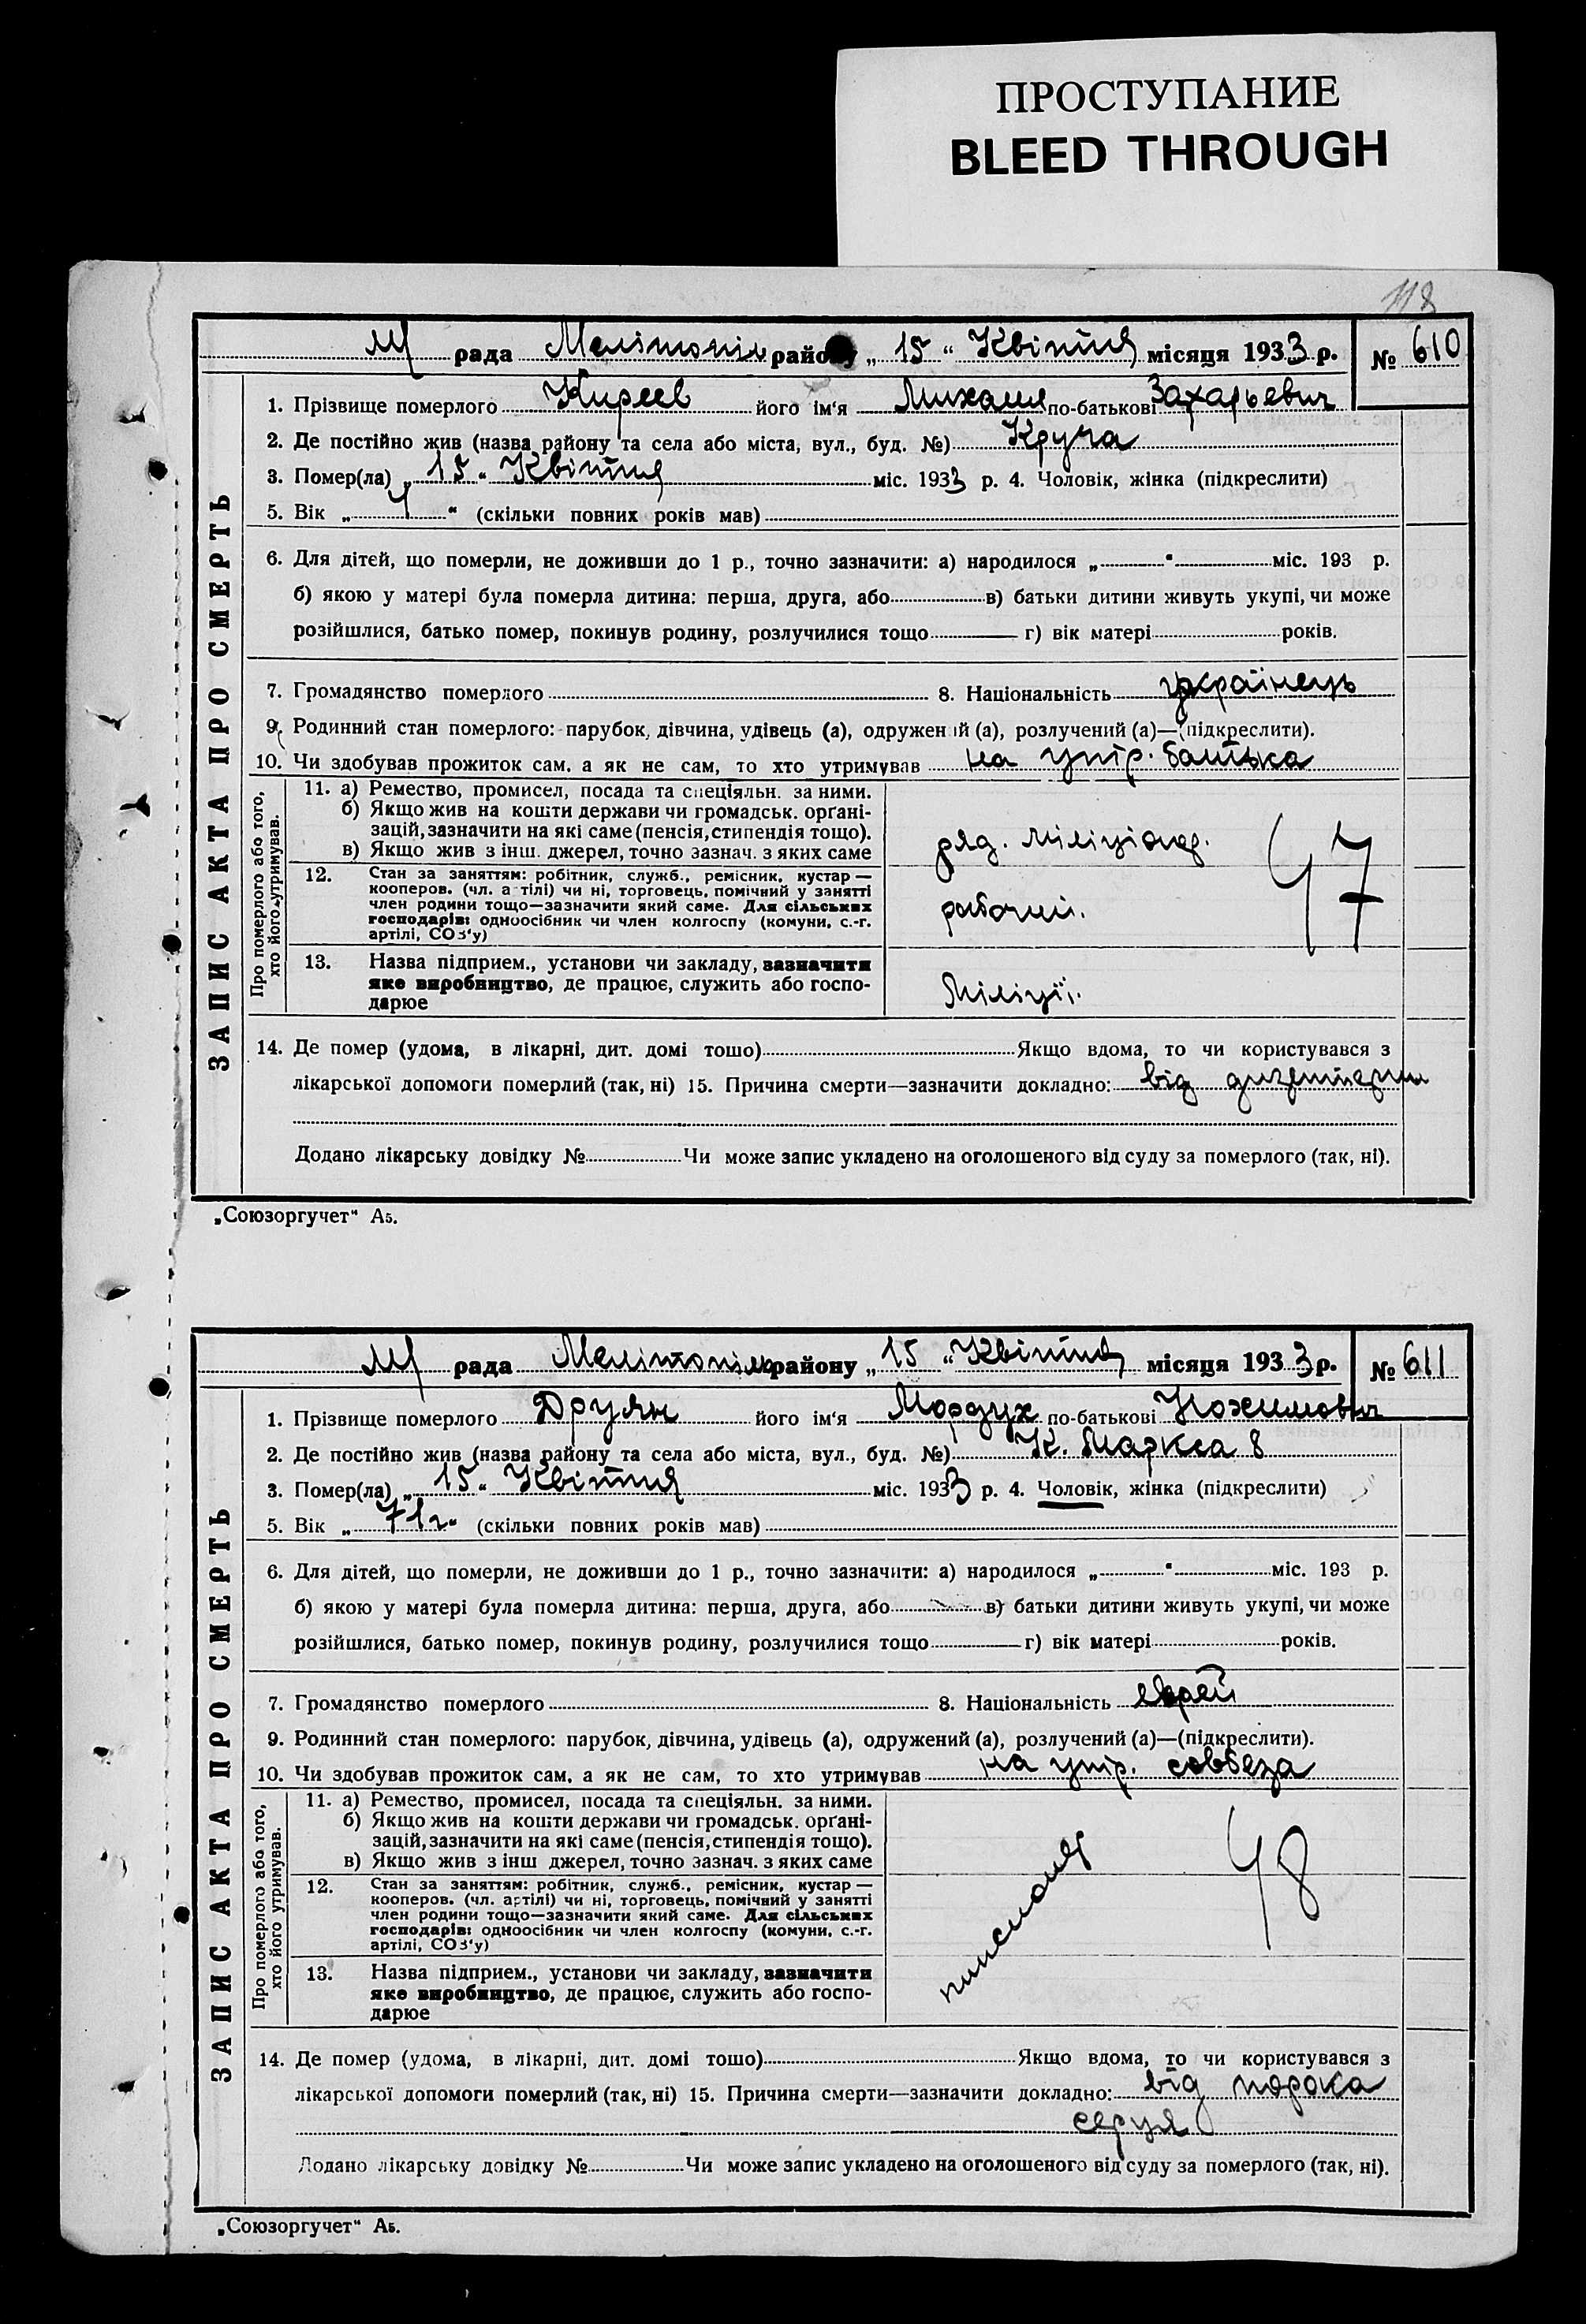 ПРОСТУПАНИЕ
BLEED THROUGH
118
М рада Мелітопіль району „15“ Квітня місяця 1933 р. № 610
ЗАПИС АКТА ПРО СМЕРТЬ
1. Прізвище померлого Киреев його ім'я Михаил по-батькові Захарьевич
2. Де постійно жив (назва району та села або міста, вул., буд. №) Круча
3. Помер(ла) „15“ Квітня міс. 1933 р. 4. Чоловік, жінка (підкреслити)
5. Вік „ “ (скільки повних років мав)
6. Для дітей, що померли, не доживши до 1 р., точно зазначити: а) народилося „ “ міс. 193 р.
б) якою у матері була померла дитина: перша, друга, або в) батьки дитини живуть укупі, чи може
розійшлися, батько помер, покинув родину, розлучилися тощо г) вік матері років.
7. Громадянство померлого 8. Національність українець
9. Родинний стан померлого: парубок, дівчина, удівець (а), одружений (а), розлучений (а)—(підкреслити).
10. Чи здобував прожиток сам, а як не сам, то хто утримував на утр. батька
Про померлого або того, хто його утримував.
11. а) Ремество, промисел, посада та спеціяльн. за ними.
б) Якщо жив на кошти держави чи громадськ. органі-
зацій, зазначити на які саме (пенсія, стипендія тощо).
в) Якщо жив з інш. джерел, точно зазнач. з яких саме
ряд. міліціонер.
47
12. Стан за заняттям: робітник, служб., ремісник, кустар —
кооперов. (чл. артілі) чи ні, торговець, помічний у занятті
член родини тощо—зазначити який саме. Для сільських
господарів: одноосібник чи член колгоспу (комуни, с.-г.
артілі, СОЗ'у)
рабочий.
13. Назва підприєм., установи чи закладу, зазначити
яке виробництво, де працює, служить або госпо-
дарює
Міліції.
14. Де помер (удома, в лікарні, дит. домі тошо) Якщо вдома, то чи користувався з
лікарської допомоги померлий (так, ні) 15. Причина смерти—зазначити докладно: від дизентерии
Додано лікарську довідку № Чи може запис укладено на оголошеного від суду за померлого (так, ні).
„Союзоргучет“ А5.
М рада Мелітопіль району „15“ Квітня місяця 1933 р. № 611
ЗАПИС АКТА ПРО СМЕРТЬ
1. Прізвище померлого Друян його ім'я Мордух по-батькові
2. Де постійно жив (назва району та села або міста, вул., буд. №) К. Маркса 8
3. Помер(ла) „15“ Квітня міс. 1933 р. 4. Чоловік, жінка (підкреслити)
5. Вік „71 г“ (скільки повних років мав)
6. Для дітей, що померли, не доживши до 1 р., точно зазначити: а) народилося „ “ міс. 193 р.
б) якою у матері була померла дитина: перша, друга, або в) батьки дитини живуть укупі, чи може
розійшлися, батько помер, покинув родину, розлучилися тощо г) вік матері років.
7. Громадянство померлого 8. Національність еврей
9. Родинний стан померлого: парубок, дівчина, удівець (а), одружений (а), розлучений (а)—(підкреслити).
10. Чи здобував прожиток сам, а як не сам, то хто утримував на утр. собеза
Про померлого або того, хто його утримував.
11. а) Ремество, промисел, посада та спеціяльн. за ними.
б) Якщо жив на кошти держави чи громадськ. органі-
зацій, зазначити на які саме (пенсія, стипендія тощо).
в) Якщо жив з інш джерел, точно зазнач. з яких саме
48
12. Стан за заняттям: робітник, служб., ремісник, кустар —
кооперов. (чл. артілі) чи ні, торговець, помічний у занятті
член родини тощо—зазначити який саме. Для сільських
господарів: одноосібник чи член колгоспу (комуни, с.-г.
артілі, СОЗ'у)
13. Назва підприєм., установи чи закладу, зазначити
яке виробництво, де працює, служить або госпо-
дарює
14. Де помер (удома, в лікарні, дит. домі тошо) Якщо вдома, то чи користувався з
лікарської допомоги померлий (так, ні) 15. Причина смерти—зазначити докладно: від порока
серця
Додано лікарську довідку № Чи може запис укладено на оголошеного від суду за померлого (так, ні).
„Союзоргучет“ А5.